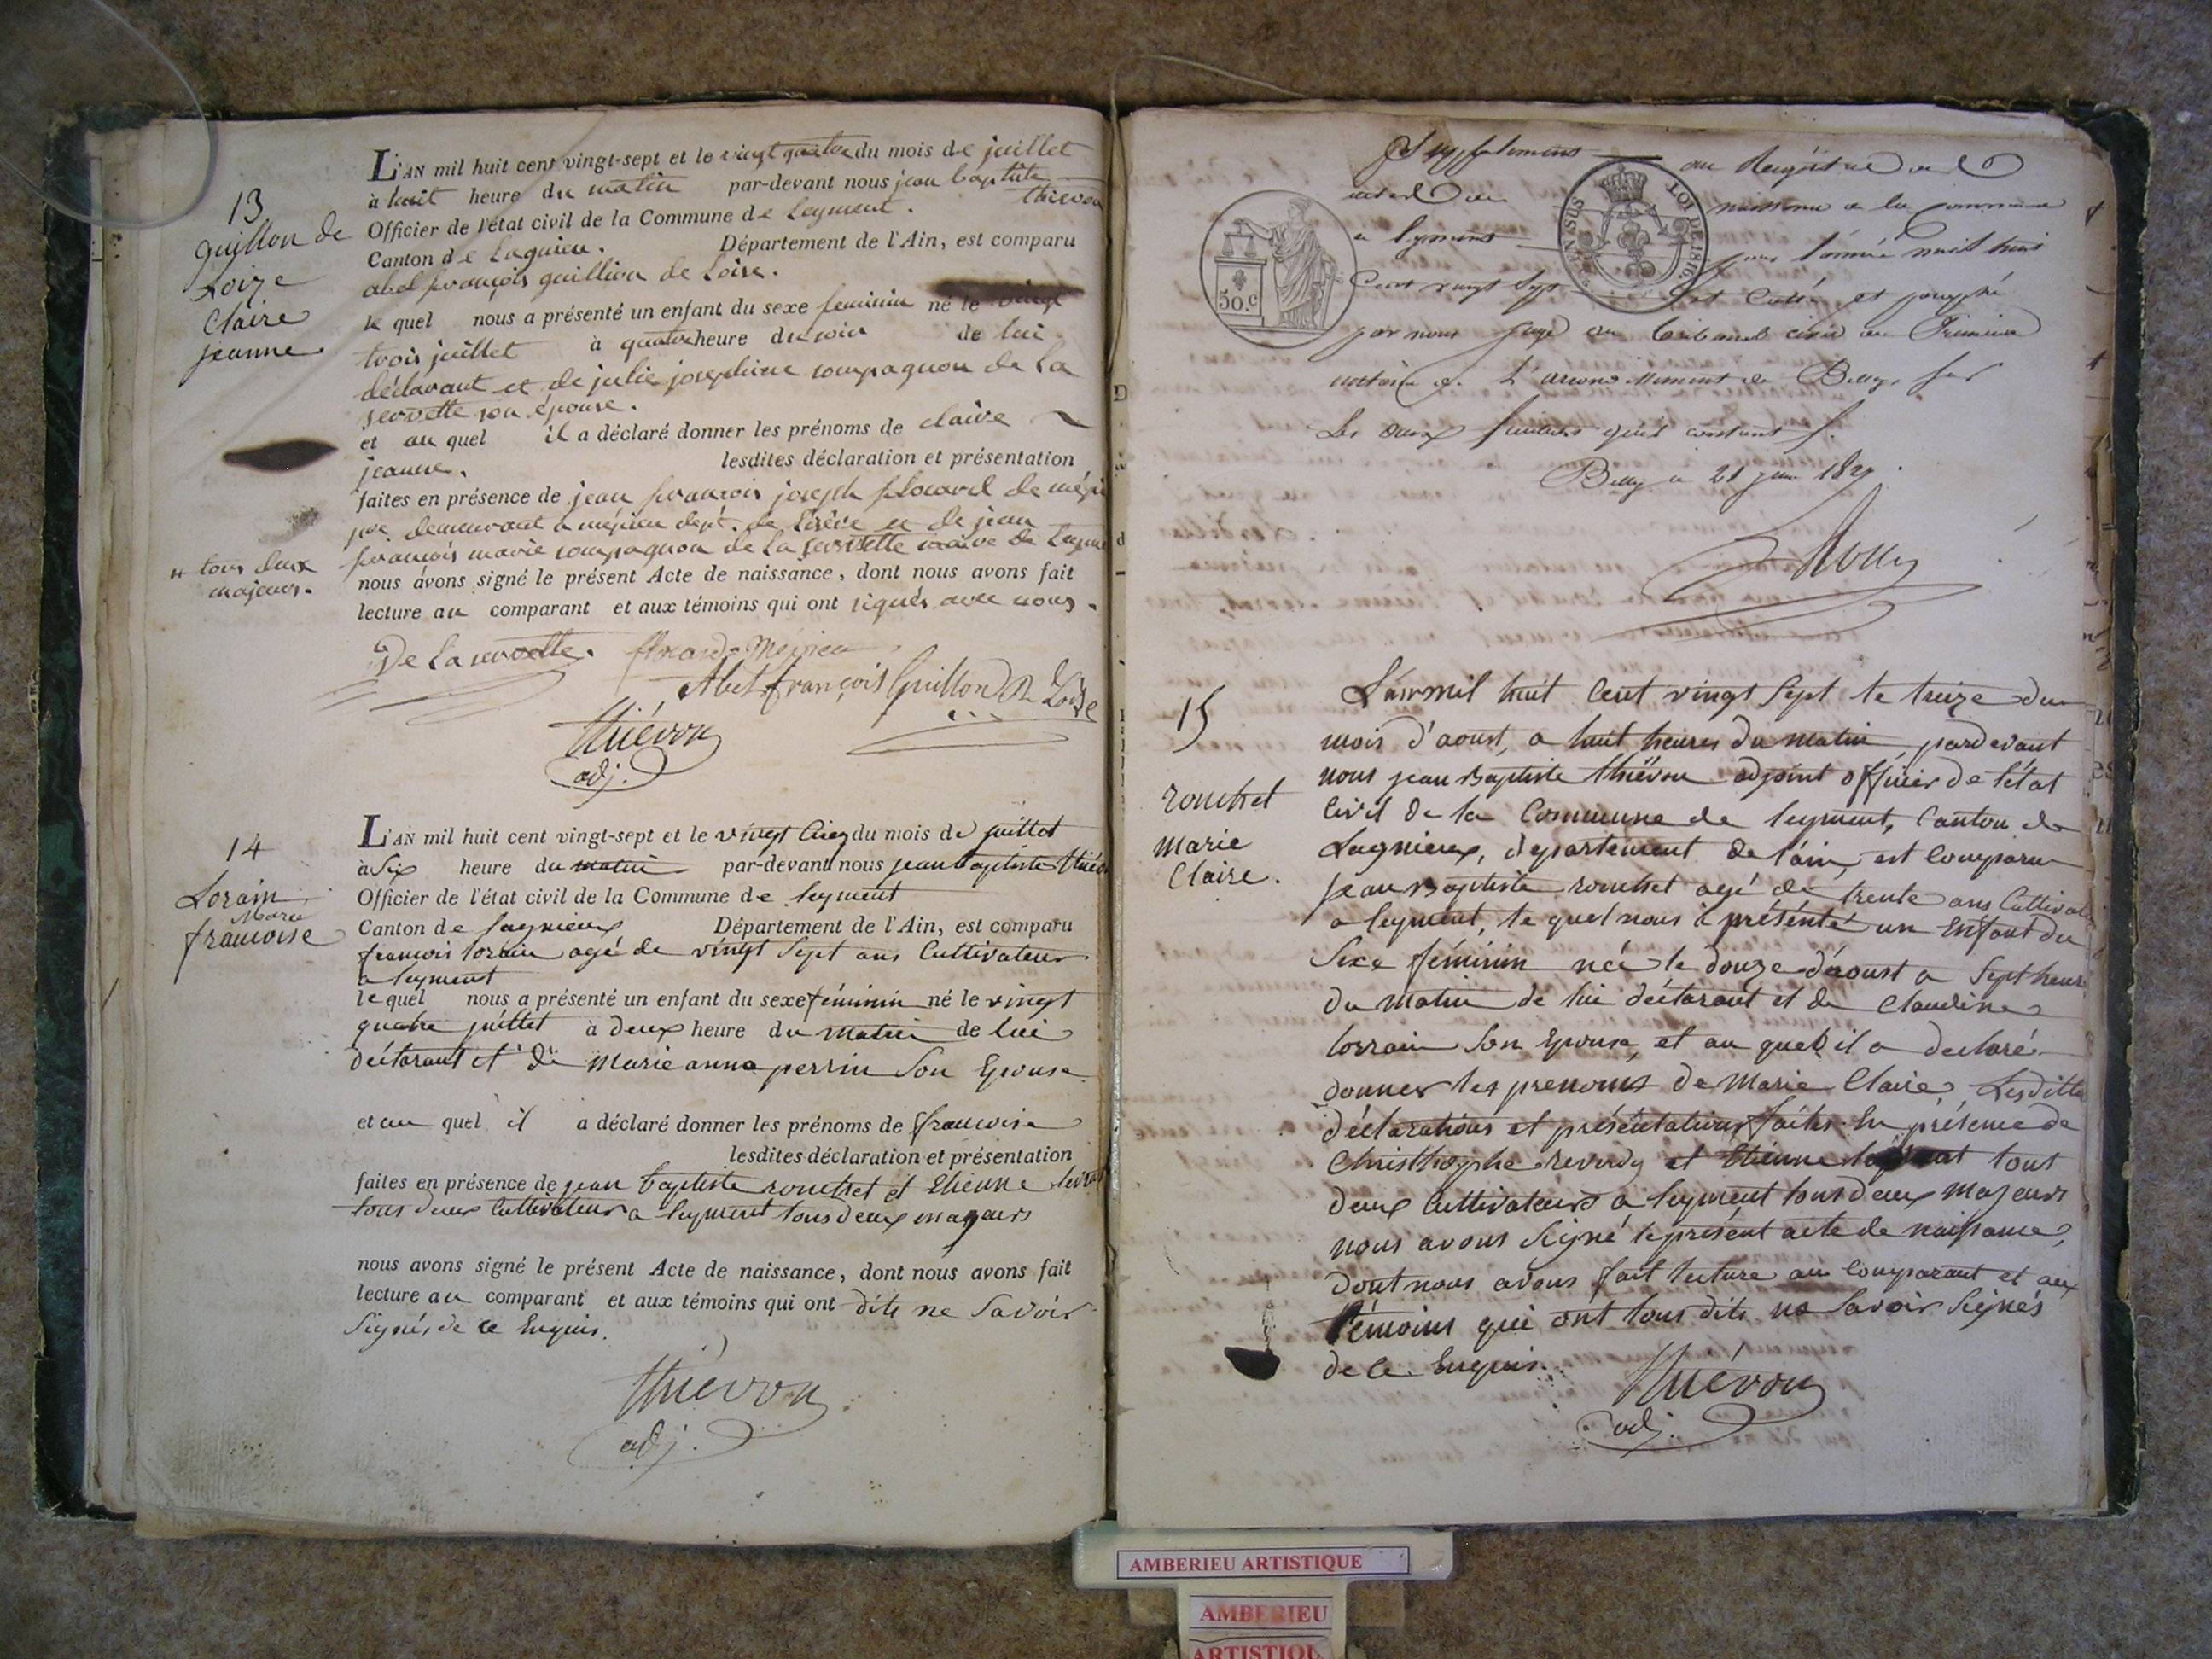 13
guillon de
Loize
Claire
jeanne
L'AN mil huit cent vingt-sept et le vingt quatre du mois de juillet
à huit heure du matin par-devant nous jean baptiste
thievon
Officier de l'état civil de la Commune de Leyment.
Canton de Lagnieu. Département de l'Ain, est comparu
abel françois guillion de Loise.
le quel nous a présenté un enfant du sexe feminin né le vingt
trois juillet à quatre heure du soir de lui
déclarant et de julie josephine compagnon de La
servette son épouse.
et au quel il a déclaré donner les prénoms de claire
jeanne. lesdites déclaration et présentation
faites en présence de jean françois joseph
demeurant a mépieu dept. de Lisère et de jean
françois marie compagnon de La servette maire de Leyment
tous deux
majeurs.
nous avons signé le présent Acte de naissance, dont nous avons fait
lecture au comparant et aux témoins qui ont signés avec nous.
De La servette.
Abel françois Guillon De Loize
thiévon
adj.
14
Lorain
Marie
francoise
L'AN mil huit cent vingt-sept et le vingt cinq du mois de juillet
à Six heure du matin par-devant nous jean baptiste thiévon
Officier de l'état civil de la Commune de leyment
Canton de Lagnieux Département de l'Ain, est comparu
francois lorain agé de vingt Sept ans Cultivateur
a leyment
le quel nous a présenté un enfant du sexe féminin né le vingt
quatre juillet à deux heure du matin de lui
déclarant et de marie anne perrin Son Epouse
et au quel il a déclaré donner les prénoms de francoise
lesdites déclaration et présentation
faites en présence de jean baptiste rouchet et Etienne levrat
tous deux Cultivateurs a leyment tous deux majeurs
nous avons signé le présent Acte de naissance, dont nous avons fait
lecture au comparant et aux témoins qui ont dits ne Savoir
Signés de ce Enquis.
thiévon
adj.
Supplement au Registre
naissance de la commune
de leyment pour l'année mil huit
Cent vingt Sept Coté et paraphé
par nous juge au tribunal civil
de L'arrondissement de Belley sur
Les deux feuillets qu'il contient
Belley le 21 juin 1827.
50.c
LOI DE 1816.
15
rouchet
marie
Claire.
L'an mil huit Cent vingt Sept le treize du
mois d'aoust, a huit heures du matin, pardevant
nous jean Baptiste thiévon adjoint officier de l'état
Civil de la Commune de leyment, Canton de
Lagnieux, departement de l'ain, est Comparu
jean Baptiste rouchet agé de trente ans Cultivateur
a leyment, le quel nous à présenté un Enfant du
Sexe féminin née le douze d'aoust a Sept heures
du matin de lui déclarant et de Claudine
lorrain Son Epouse, et au quel il a declaré
donner les prenoms de Marie Claire, Lesdittes
déclarations et présentations faites En présence de
Christhophe reverdy et Etienne tous
deux Cultivateurs a leyment tous deux majeurs
nous avons Signé le présent acte de naissance,
dont nous avons fait lecture au Comparant et aux
témoins qui ont tous dits ne Savoir Signés
de ce Enquis.
thiévon
adj.
AMBERIEU ARTISTIQUE
AMBERIEU
ARTISTIQU